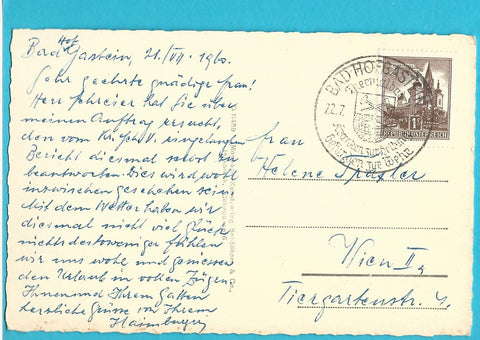 Bad Hofgastein, 21./VII. 1960.
Sehr geehrte gnädige Frau!
Herr Schreier hat Sie über
meinen Auftrag ersucht,
den vom eingelangten
Bericht diesmal selbst zu
beantworten. Dies wird wohl
inzwischen geschehen sein.
Mit dem Wetter haben wir
diesmal nicht viel Glück
nichtsdestoweniger fühlen
wir uns wohl und geniessen
den Urlaub in vollen Zügen.
Ihnen und Ihrem Gatten
herzliche Grüsse von Ihrem
BAD HOFGASTEIN
22.7.
REPUBLIK ÖSTERREICH
Frau
Helene
Wien II,
Tiergartenstr. 4